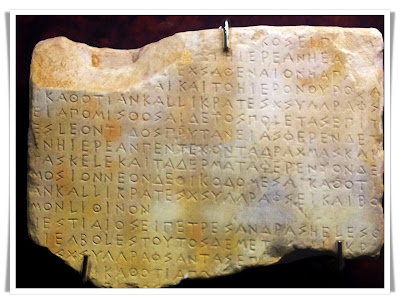 ΚΟΣΕΙΠΕ
ΗΙΕΡΕΑΝΗΕ
ΕΧΣΑΘΕΝΑΙΟΝΗΑΠΑ
ΑΙΚΑΙΤΟΗΙΕΡΟΝΘΥΡΟΣΑ
ΙΚΑΘΟΤΙΑΝΚΑΛΛΙΚΡΑΤΕΣΧΣΥΓΓΡΑΦΣ
ΕΙΑΠΟΜΙΣΘΟΣΑΙΔΕΤΟΣΠΟΛΕΤΑΣΕΠΙΤ
ΕΣΛΕΟΝΤΙΔΟΣΠΡΥΤΑΝΕΙΑΣΦΕΡΕΝΔΕΤ
ΕΝΗΙΕΡΕΑΝΠΕΝΤΕΚΟΝΤΑΔΡΑΧΜΑΣΚΑΙ
ΤΑΣΚΕΛΕΚΑΙΤΑΔΕΡΜΑΤΑΦΕΡΕΝΤΟΝΔΕ
ΜΟΣΙΟΝΝΕΟΝΔΕΟΙΚΟΔΟΜΕΣΑΙΚΑΘΟΤΙ
ΑΝΚΑΛΛΙΚΡΑΤΕΣΧΣΥΓΓΡΑΦΣΕΙΚΑΙΒΟΜ
ΟΝΛΙΘΙΝΟΝ
ΗΕΣΤΙΑΙΟΣΕΙΠΕΤΡΕΣΑΝΔΡΑΣΗΕΛΕΣΘ
ΑΙΕΓΒΟΛΕΣΤΟΥΤΟΣΔΕΜΕΤ
ΧΣΥΓΓΡΑΦΣΑΝΤΑΣ
ΚΑΘΟΤΙΑΠ